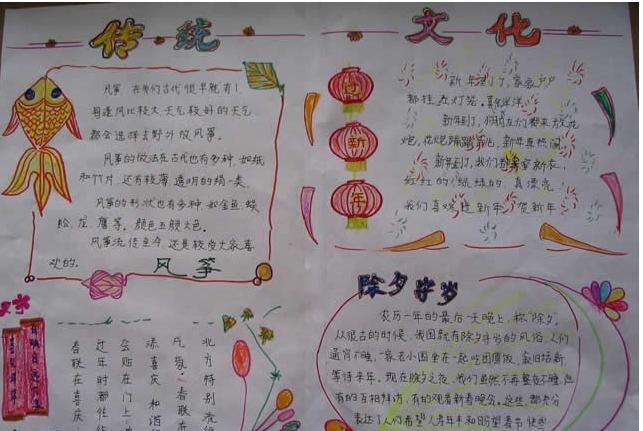 传统文化
风筝,在我们古代很早就有了,
每逢风比较大,天气较好的天气
都会选择去野外放风筝。
风筝的做法在古代也有多种,如纸
和竹片,还有较薄,透明的绢一类。
风筝的形状也有多种,如金鱼,蜈
蚣,龙,鹰等。颜色五颜六色。
风筝流传至今,还是较受大家喜
欢的。
风筝
新年到了,家家户户
都挂起灯笼,喜洋洋
新年到了,伙伴们都来放花
炮,花炮蹦蹦,新年真热闹
新年到了,我们都穿新衣,
红红的,绿绿的,真漂亮
我们喜欢迎新年,贺新年
新
年
除夕守岁
农历一年的最后一天晚上,称"除夕。
从很古的时候,我国就有除夕守岁的风俗,人们
通宵不睡,一家老小围坐在一起吃团圆饭,辞旧结新,
等待来年。现在除夕之夜,我们虽然不再整夜不睡,然
有的互相拜访,有的观看新春晚会。这些,都充分
表达了人们希望人寿年丰和盼望春节
北方特别流
凡
添喜庆
会年贴在门上
过年时
春联在喜庆